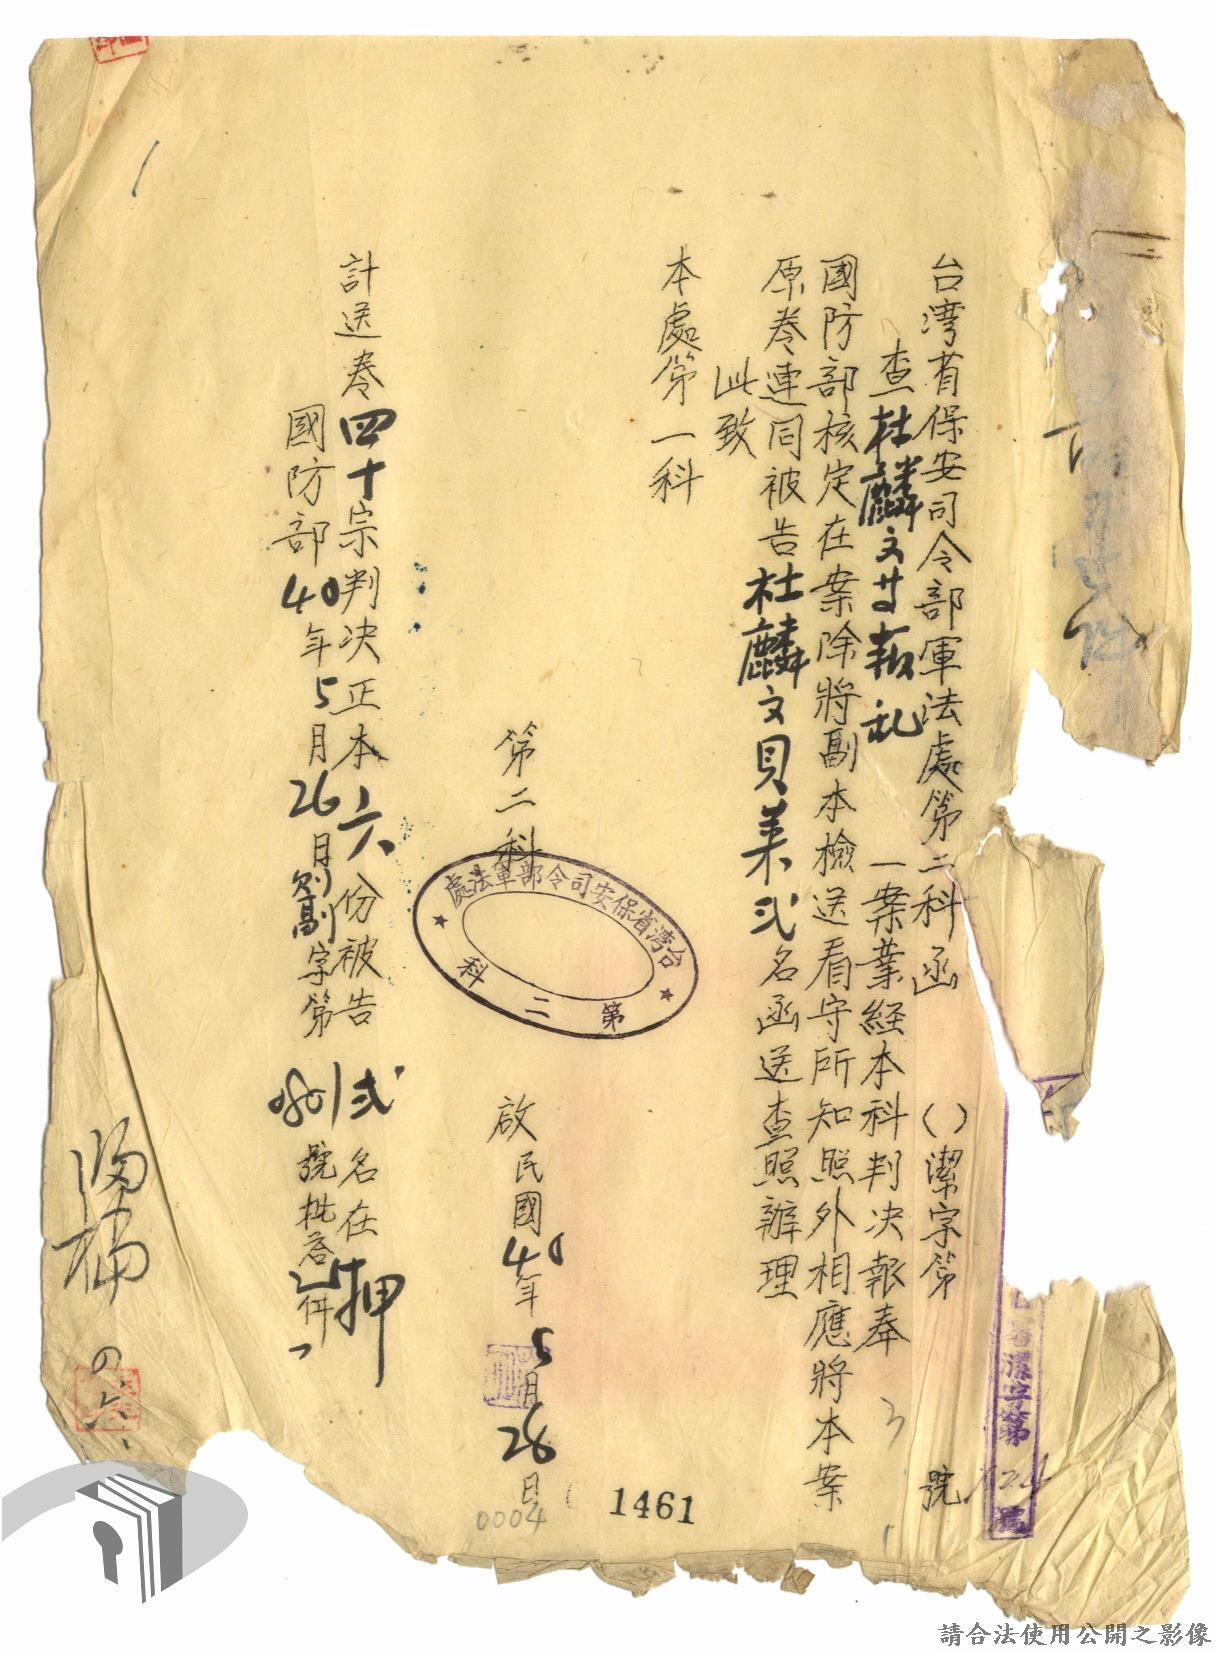 台湾省保安司令部軍法處第二科函　（）潔字第　號
查杜麟文等叛乱　一案業経本科判决報奉
國防部核定在案除將副本檢送看守所知照外相應將本案
原卷連同被告杜麟文貝萊弍名函送查照辦理
此致
本處第一科
第二科　啟　民國40年5月28日
台湾省保安司令部軍法處
第二科
計送卷四十宗判决正本六份被告弍名在押
國防部40年5月26日　字第　號批答乙件
潔字第
號
1461
0004
請合法使用公開之影像